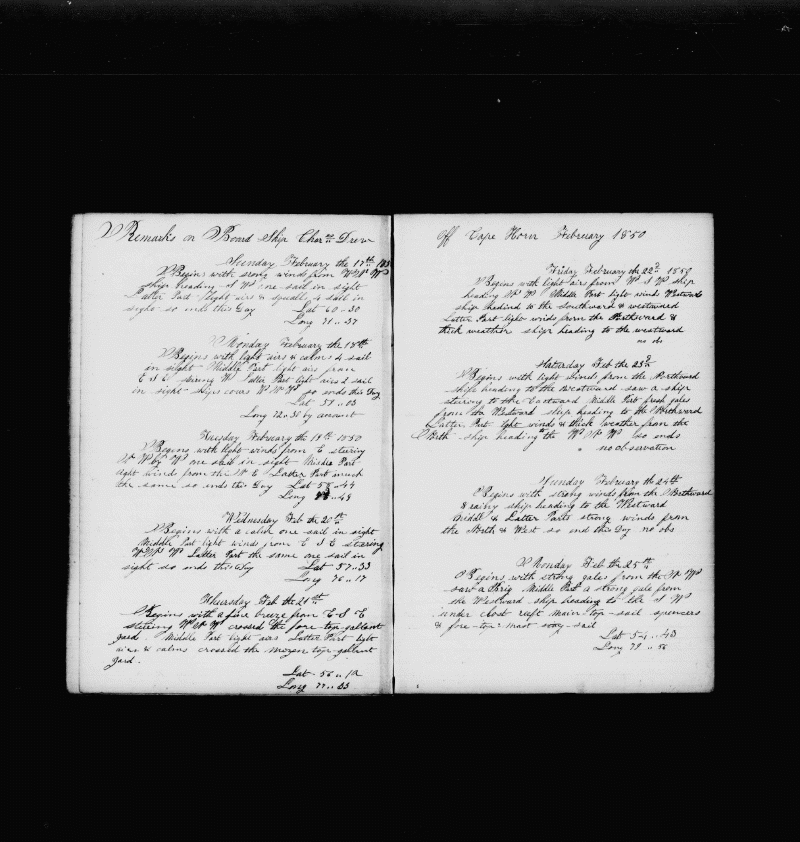 Remarks on Board Ship Chas Drew
Sunday February the 17th 1850
Begins with strong winds from W.N.W
ship heading S W one sail in sight
Latter Part light airs & squally 4 sail in
sight so ends this day Lat 60-30
Long 71..37
Monday February the 18th
Begins with light airs & calms 4 sail
in sight - Middle Part light airs from
E S E steering W Latter Part light airs 2 sail
in sight - ships cours W.N.W so ends this Day
Lat 59..03
Long 72..38 by account
Tuesday February the 19th 1850
Begins with light winds from E steering
N W by W one sail in sight Middle Part
light winds from the N E Latter Part much
the same so ends this Day Lat 58..44
Long ..48
Wednesday Feb the 20th
Begins with a calm one sail in sight
Middle Part light winds from E S E steering
W.N.W Latter Part the same one sail in
sight so ends this day Lat 57..33
Long 76..17
Thursday Feb the 21st
Begins with a fine breeze from E.S.E
steering W N W crossed the fore-top-gallant
yard. Middle Part light airs Latter Part light
airs & calms crossed the mizen top-gallant
yard.
Lat 56..12
Long 77..33
Off Cape Horn February 1850
Friday February the 22d 1850
Begins with light airs from W S W ship
heading N W Middle Part light winds Westward
ship headind to the Southward & westward
Latter Part light winds from the Northward &
thick weather ship heading to the westward
no obs
Saturday Feb the 23d
Begins with light winds from the Northward
ship heading to the westward saw a ship
steering to the Eastward Middle Part fresh gales
from the Westward ship heading to the Northward
Latter Part light winds & thick weather from the
North - ship heading to the W N W so ends
no observation
Sunday February the 24th
Begins with strong winds from the Northward
& rainy ship heading to the Westward
Middle & Latter Parts strong winds from
the North & West so end this Day no obs
Monday Feb the 25th
Begins with strong gales from the N W
saw a Brig Middle Part a strong gale from
the Westward - ship heading to the S W
under close reeft main-top-sail spencers
& fore-top-mast stay-sail
Lat 54..43
Long 79..56